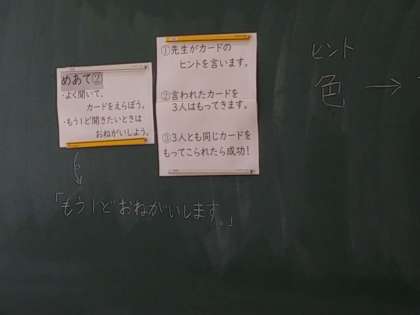 めあて②
・よく聞いて、
カードをえらぼう。
・もう1ど聞きたいときは
おねがいしよう。
「もう1どおねがいします。」
①先生がカードの
ヒントを言います。
②言われたカードを
3人はもってきます。
③3人とも同じカードを
もってこられたら成功!
ヒント
色 →